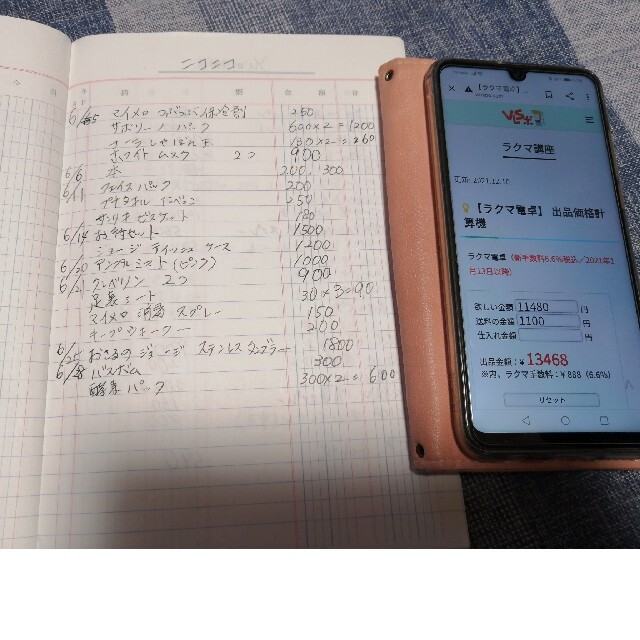 ニコニコ
金 額
6/5 マイメロ つぶつぶ保冷剤 250
サボリーノ パック 600×2=1200
180×2=360
ホワイト ムスク 2つ 900
6/6 本 200, 300
6/11 フェイス パック 200
250
サンリオ ビスケット 180
6/14 お弁当セット 1500
ジョージ ティッシュ ケース 1200
6/20 アングルミスト(ピンク) 1000
6/21 クレベリン 2つ 900
足裏シート 30×3=90
マイメロ 消毒 スプレー 150
キープウォーター 200
6/25 おさるのジョージ ステンレス タンブラー 1800
6/28 バスボム 300
酵素 パック 300×2=600
【ラクマ電卓】...
ラクマ講座
更新: 2021.12.10
【ラクマ電卓】 出品価格計
算機
ラクマ電卓(新手数料6.6%税込/2021年1
月13日以降)
欲しい金額 11480 円
送料の金額 1100 円
仕入れ金額 円
出品金額:¥ 13468
※内、ラクマ手数料:¥ 888 (6.6%)
リセット